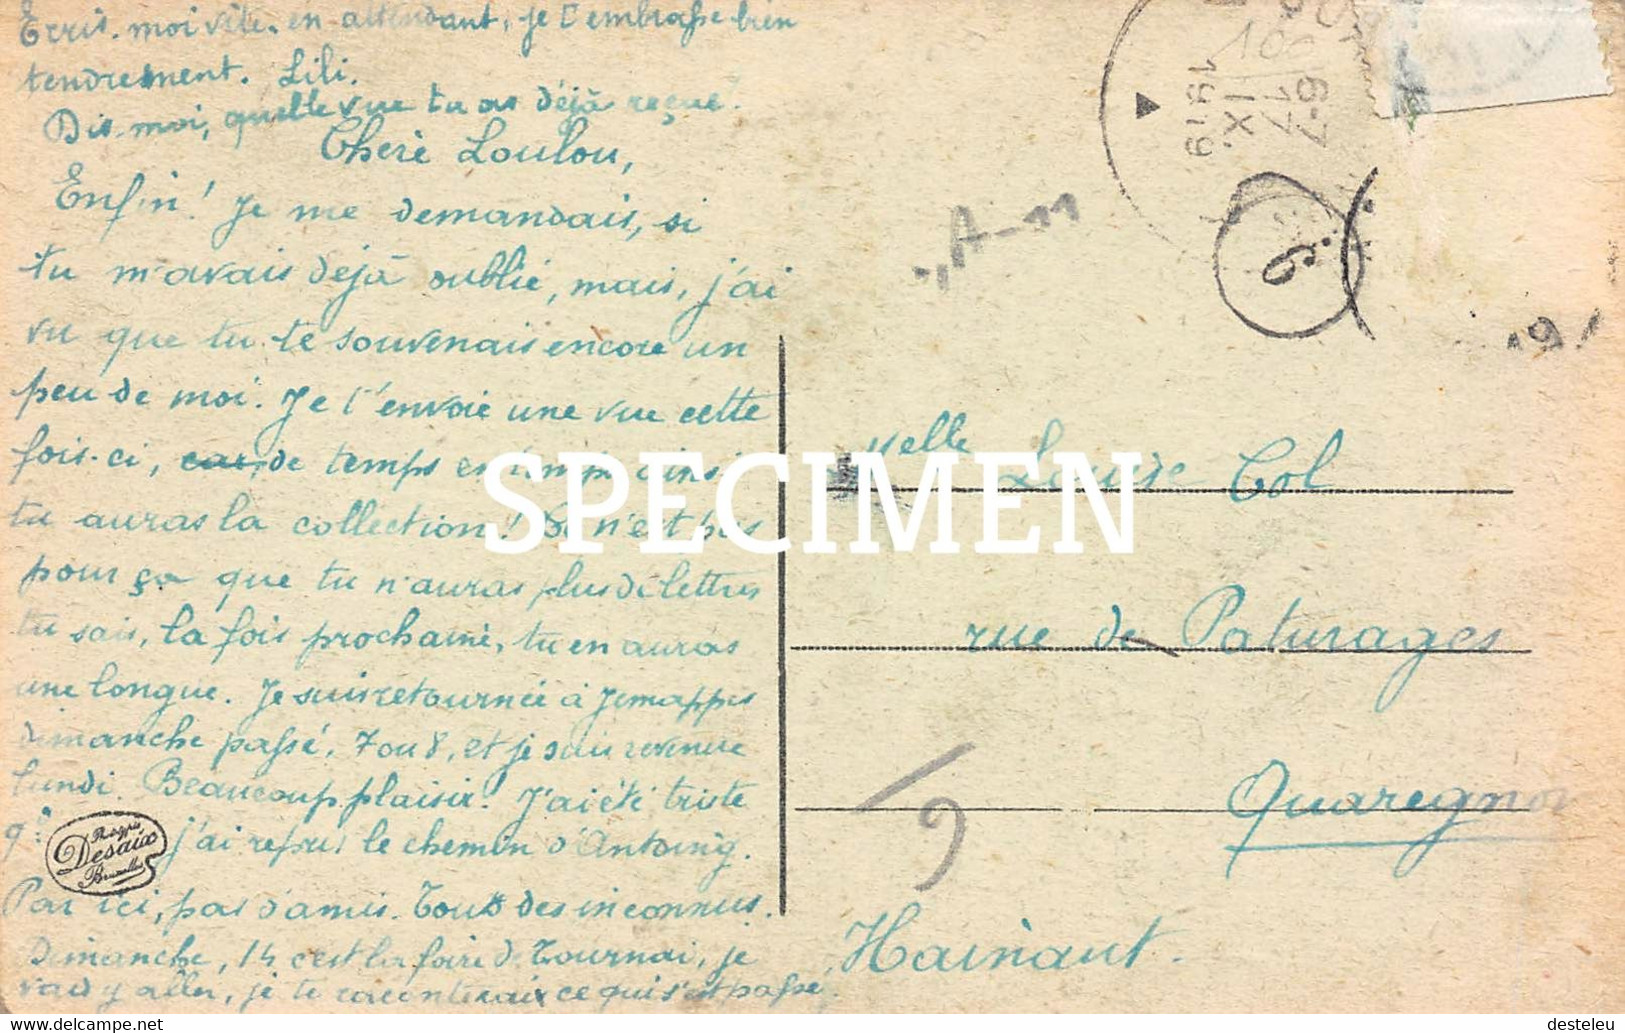 Ecris-moi vite. en attendant, je t'embrasse bien
tendrement. Lili.
Dis-moi, quelle vue tu as déjà reçue?
Chère Loulou,
Enfin! Je me demandais, si
tu m'avais déjà oublié, mais, j'ai
vu que tu te souvenais encore un
peu de moi. Je t'envoie une vue cette
fois-ci, car, de temps en temps ainsi
tu auras la collection! Ce n'est pas
pour ça que tu n'auras plus de lettres
tu sais, la fois prochaine, tu en auras
une longue. Je suis retournée à Jemappes
dimanche passé, 7 ou 8, et je suis revenue
lundi. Beaucoup plaisir. J'ai été triste
qd j'ai repris le chemin d'Antoing.
Par ici, pas d'amis. Tous des inconnus.
Dimanche, 14 c'est la foire de Tournai, je
vais y aller, je te raconterai ce qui s'est passé
Phototypie
Desaix
Bruxelles
6-7
17
IX
1919
A-11
6
19
Melle Louise Col
rue de Paturages
Quaregnon
Hainaut.
SPECIMEN
https://www.delcampe.net
desteleu